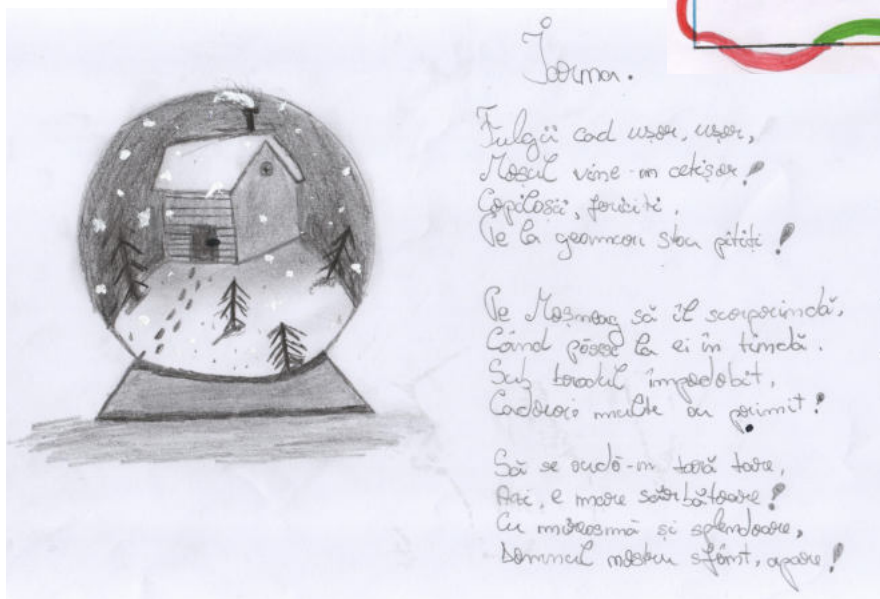 Iarna.
Fulgii cad ușor, ușor,
Moșul vine-n cetișor!
Copilașii, fericiti,
Pe la geamuri stau pitiți!
Pe Moșneag să îl surprindă,
Când pășește la ei în tindă.
Sub bradul împodobit,
Cadouri multe au primit!
Să se audă-n țară tare,
Azi, e mare sărbătoare!
Cu mireasmă și splendoare,
Domnul nostru sfânt, apare!